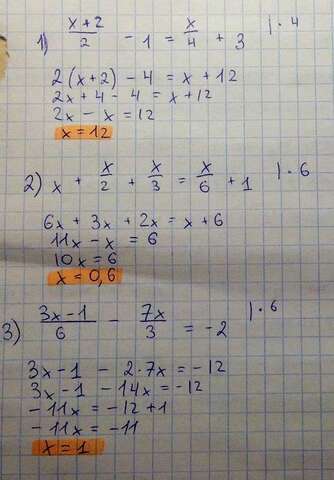 1) (x+2)/2 - 1 = x/4 + 3 |· 4
2(x+2) - 4 = x + 12
2x + 4 - 4 = x + 12
2x - x = 12
x = 12
2) x + x/2 + x/3 = x/6 + 1 |· 6
6x + 3x + 2x = x + 6
11x - x = 6
10x = 6
x = 0,6
3) (3x-1)/6 - 7x/3 = -2 |· 6
3x - 1 - 2·7x = -12
3x - 1 - 14x = -12
-11x = -12 + 1
-11x = -11
x = 1